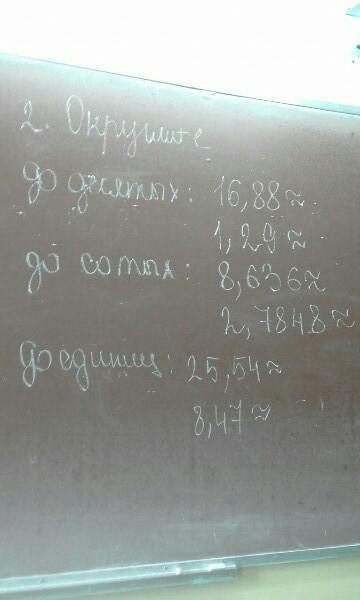 2. Округлите
до десятых: 16,88≈
1,29≈
до сотых: 8,636≈
2,7848≈
До единиц: 25,54≈
8,47≈